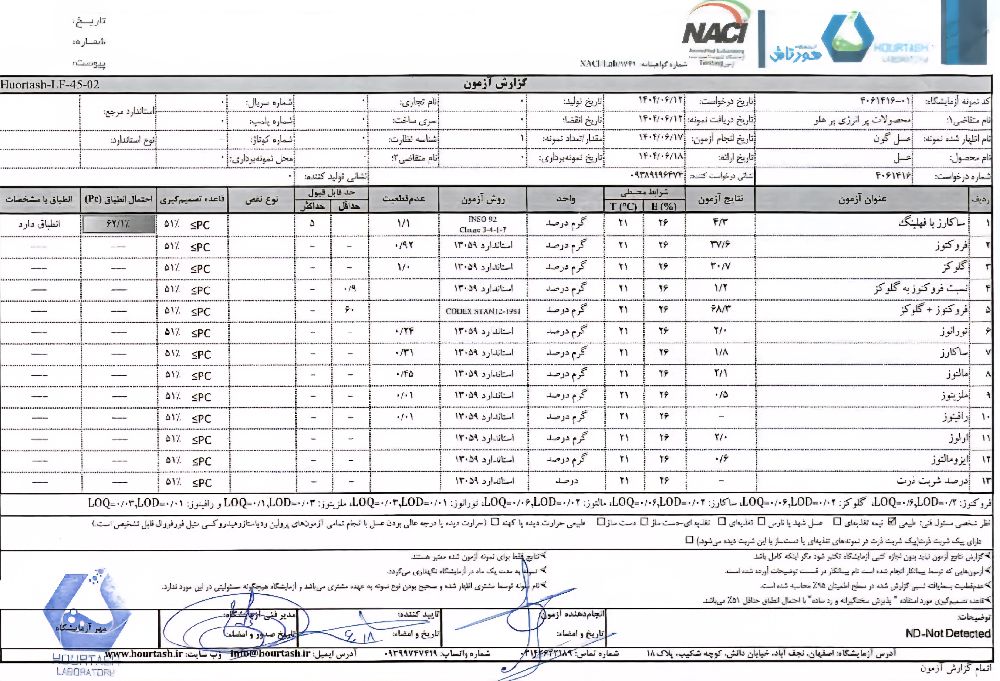 تاریخ:
شماره:
پیوست:
NACI
Accredited Laboratory
Testing
شماره گواهینامه: NACI/Lab/۱۷۴۹
هورتاش
HOURTASH
LABORATORY
Huortash-LF-45-02
گزارش آزمون
کد نمونه آزمایشگاه: ۴۰۶۱۴۱۶-۰۱ تاریخ درخواست: ۱۴۰۴/۰۶/۱۲ تاریخ تولید: ۰ نام تجاری: ۰ شماره سریال: ۰ استاندارد مرجع:
نام متقاضی۱: محصولات پر انرژی پر هلو تاریخ دریافت نمونه: ۱۴۰۴/۰۶/۱۲ تاریخ انقضا: ۰ سری ساخت: ۰ شماره پلمپ: ۰
نام اظهار شده نمونه: عسل گون تاریخ انجام آزمون: ۱۴۰۴/۰۶/۱۷ مقدار/تعداد نمونه: ۱ شناسه نظارت: ۰ شماره کوتاژ: ۰ نوع استاندارد:
نام محصول: عسل تاریخ ارائه: ۱۴۰۴/۰۶/۱۸ تاریخ نمونه‌برداری: ۰ نام متقاضی۲: ۰ محل نمونه‌برداری: ۰
شماره درخواست: ۴۰۶۱۴۱۶ نشانی درخواست کننده: ۰۹۳۸۹۱۹۶۴۷۴ نشانی تولید کننده: ۰
ردیف عنوان آزمون نتایج آزمون شرایط محیطی H (%) T (°C) واحد روش آزمون عدم‌قطعیت حد قابل قبول حداقل حداکثر نوع نقص قاعده تصمیم‌گیری احتمال انطباق (Pc) انطباق با مشخصات
۱ ساکارز با فهلینگ ۴/۳ ۲۶ ۲۱ گرم درصد INSO 92 Clause 3-4-1-7 ۱/۱ ۵ ۵۱٪ ≤PC ۶۲/۱٪ انطباق دارد
۲ فروکتوز ۳۷/۶ ۲۶ ۲۱ گرم درصد استاندارد ۱۳۰۵۹ ۰/۹۲ - - ۵۱٪ ≤PC --- ---
۳ گلوکز ۳۰/۷ ۲۶ ۲۱ گرم درصد استاندارد ۱۳۰۵۹ ۱/۰ - - ۵۱٪ ≤PC --- ---
۴ نسبت فروکتوز به گلوکز ۱/۲ ۲۶ ۲۱ گرم درصد استاندارد ۱۳۰۵۹ ۰/۹ ۵۱٪ ≤PC --- ---
۵ فروکتوز + گلوکز ۶۸/۳ ۲۶ ۲۱ گرم درصد CODEX STAN12-1981 ۶۰ - ۵۱٪ ≤PC --- ---
۶ تورانوز ۲/۰ ۲۶ ۲۱ گرم درصد استاندارد ۱۳۰۵۹ ۰/۲۴ - - ۵۱٪ ≤PC --- ---
۷ ساکارز ۱/۸ ۲۶ ۲۱ گرم درصد استاندارد ۱۳۰۵۹ ۰/۳۱ - - ۵۱٪ ≤PC --- ---
۸ مالتوز ۲/۱ ۲۶ ۲۱ گرم درصد استاندارد ۱۳۰۵۹ ۰/۴۵ - - ۵۱٪ ≤PC --- ---
۹ ملزیتوز ۰/۵ ۲۶ ۲۱ گرم درصد استاندارد ۱۳۰۵۹ ۰/۰۱ - - ۵۱٪ ≤PC --- ---
۱۰ رافینوز - ۲۶ ۲۱ گرم درصد استاندارد ۱۳۰۵۹ ۰/۰۱ - - ۵۱٪ ≤PC --- ---
۱۱ ارلوز ۲/۰ ۲۶ ۲۱ گرم درصد استاندارد ۱۳۰۵۹ - - ۵۱٪ ≤PC --- ---
۱۲ ایزومالتوز ۰/۶ ۲۶ ۲۱ گرم درصد استاندارد ۱۳۰۵۹ - - ۵۱٪ ≤PC --- ---
۱۳ درصد شربت ذرت - ۲۶ ۲۱ درصد استاندارد ۱۳۰۵۹ - - ۵۱٪ ≤PC --- ---
فروکتوز: LOQ=۰/۰۶,LOD=۰/۰۲، گلوکز: LOQ=۰/۰۶,LOD=۰/۰۲، ساکارز: LOQ=۰/۰۶,LOD=۰/۰۲، مالتوز: LOQ=۰/۰۶,LOD=۰/۰۲، تورانوز: LOQ=۰/۰۳,LOD=۰/۰۱، ملزیتوز: LOQ=۰/۱,LOD=۰/۰۳ و رافینوز: LOQ=۰/۰۳,LOD=۰/۰۱
نظر شخصی مسئول فنی: طبیعی ☑ نیمه تغذیه‌ای ☐ عسل شهد یا نارس ☐ تغذیه‌ای ☐ تغذیه ای-دست ساز ☐ دست ساز ☐ طبیعی حرارت دیده یا کهنه ☐ (حرارت دیده یا درجه عالی بودن عسل با انجام تمامی آزمون‌های پرولین و دیاستاز و هیدروکسی متیل فورفورال قابل تشخیص است.)
دارای پیک شربت ذرت(پیک شربت ذرت در نمونه‌های تغذیه‌ای یا دست‌ساز با این شربت دیده می‌شود) ☐
گزارش نتایج آزمون نباید بدون اجازه کتبی آزمایشگاه تکثیر شود مگر اینکه کامل باشد. نتایج فقط برای نمونه آزمون شده معتبر هستند.
آزمون‌هایی که توسط پیمانکار انجام شده است نام پیمانکار در قسمت توضیحات آورده شده است. نمونه به مدت یک ماه در آزمایشگاه نگهداری می‌گردد.
عدم‌قطعیت بسط‌یافته نسبی گزارش شده در سطح اطمینان ۹۵٪ محاسبه شده است. نام نمونه توسط مشتری اظهار شده و صحیح بودن نوع نمونه به عهده مشتری می‌باشد و آزمایشگاه هیچگونه مسئولیتی در این مورد ندارد.
قاعده تصمیم‌گیری مورد استفاده " پذیرش سختگیرانه و رد ساده" با احتمال انطباق حداقل ۵۱٪ می‌باشد.
توضیحات: انجام‌دهنده آزمون: تایید کننده: مدیر فنی آزمایشگاه:
ND-Not Detected تاریخ و امضاء: تاریخ و امضاء: تاریخ صدور و امضاء: مهر آزمایشگاه
آدرس آزمایشگاه: اصفهان، نجف آباد، خیابان دانش، کوچه شکیب، پلاک ۱۸ شماره تماس: ۰۳۱۴۲۶۴۲۱۸۹ شماره واتساپ: ۰۹۳۹۹۷۴۷۴۱۹ آدرس ایمیل: info@hourtash.ir وب سایت: www.hourtash.ir
HOURTASH
LABORATORY
اتمام گزارش آزمون